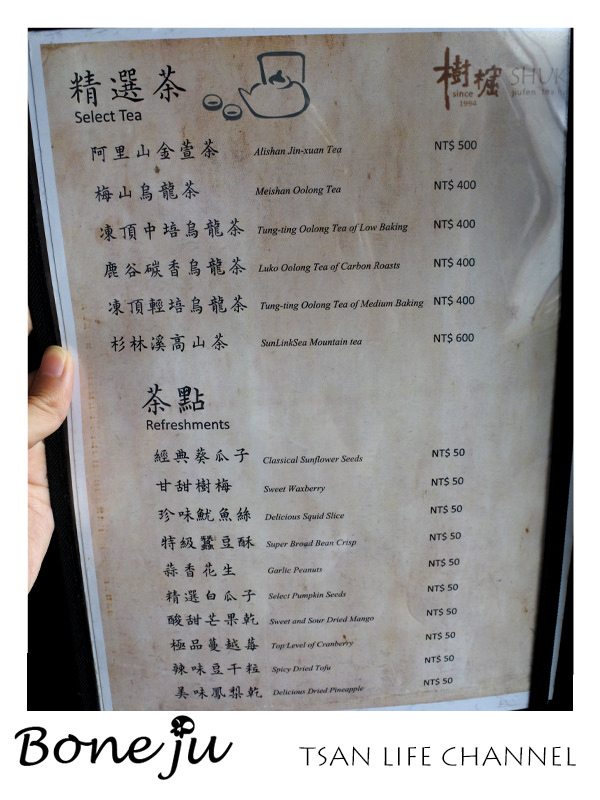 精選茶
Select Tea
樹窟
since
1994
阿里山金萱茶 Alishan Jin-xuan Tea NT$ 500
梅山烏龍茶 Meishan Oolong Tea NT$ 400
凍頂中培烏龍茶 Tung-ting Oolong Tea of Low Baking NT$ 400
鹿谷碳香烏龍茶 Luko Oolong Tea of Carbon Roasts NT$ 400
凍頂輕培烏龍茶 Tung-ting Oolong Tea of Medium Baking NT$ 400
杉林溪高山茶 SunLinkSea Mountain tea NT$ 600
茶點
Refreshments
經典葵瓜子 Classical Sunflower Seeds NT$ 50
甘甜樹梅 Sweet Waxberry NT$ 50
珍味魷魚絲 Delicious Squid Slice NT$ 50
特級蠶豆酥 Super Broad Bean Crisp NT$ 50
蒜香花生 Garlic Peanuts NT$ 50
精選白瓜子 Select Pumpkin Seeds NT$ 50
酸甜芒果乾 Sweet and Sour Dried Mango NT$ 50
極品蔓越莓 Top Level of Cranberry NT$ 50
辣味豆干粒 Spicy Dried Tofu NT$ 50
美味鳳梨乾 Delicious Dried Pineapple NT$ 50
Boneju
TSAN LIFE CHANNEL